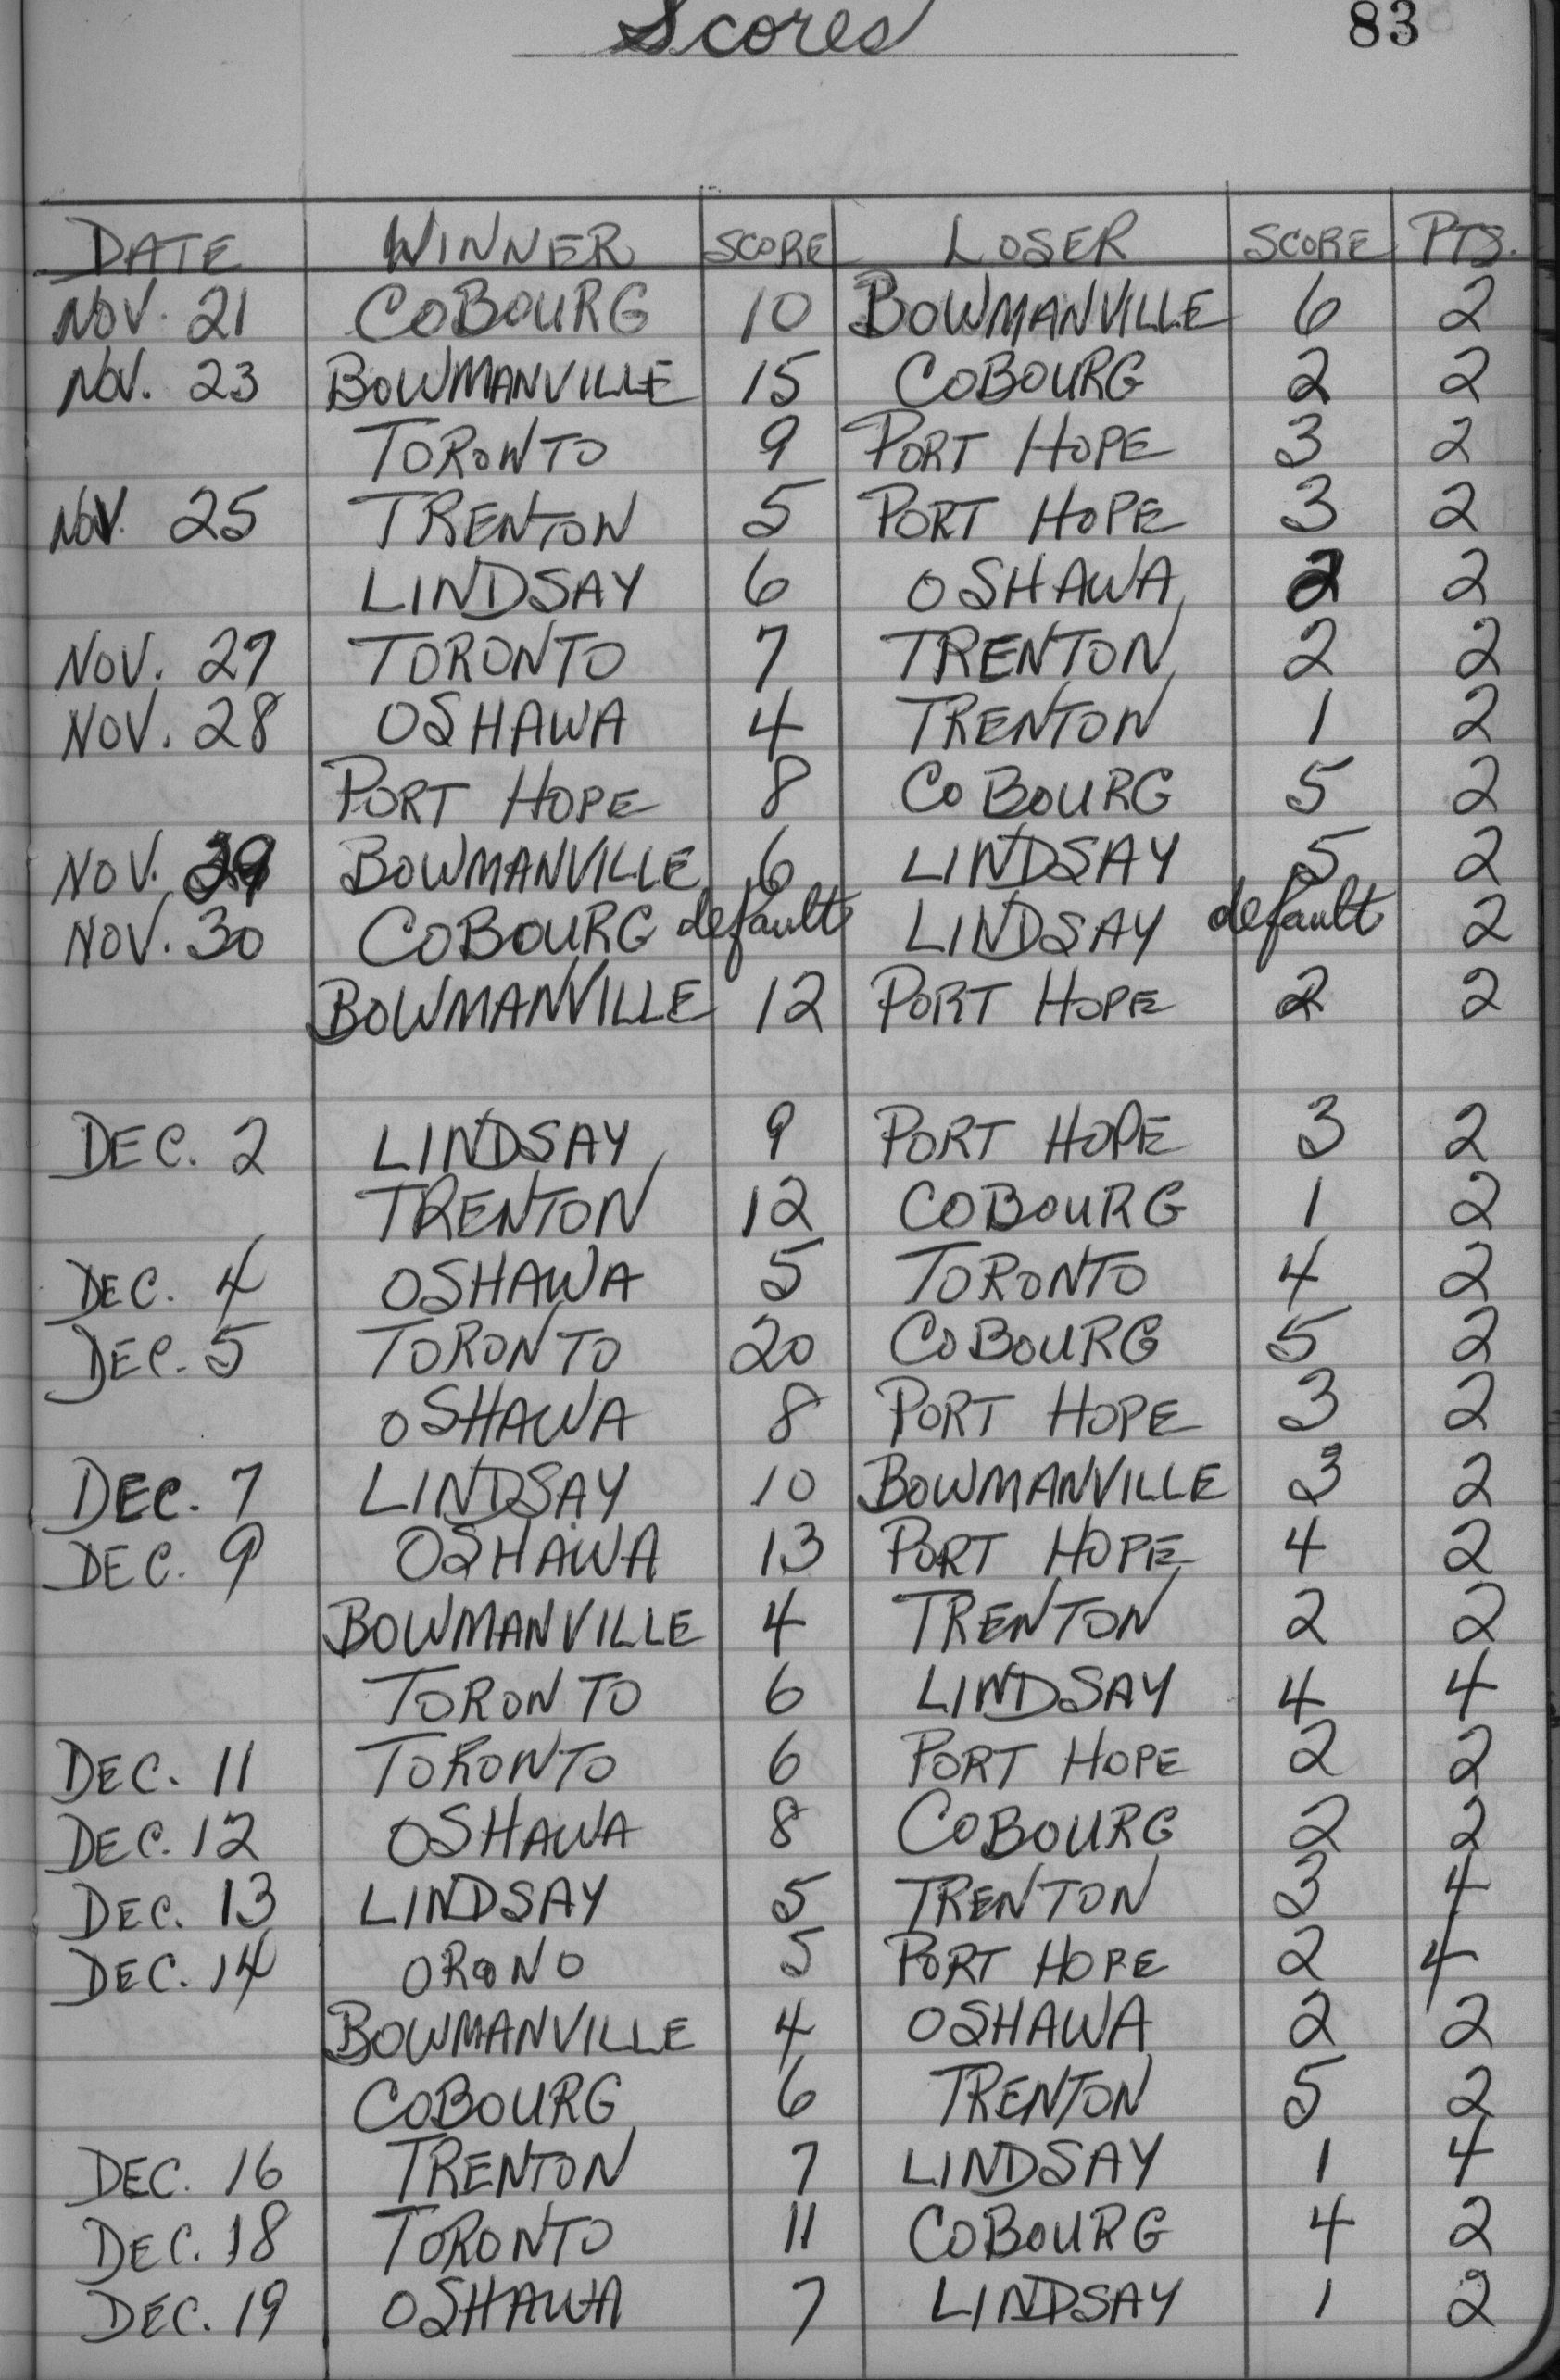 Scores 83
DATE WINNER SCORE LOSER SCORE PTS.
NOV. 21 COBOURG 10 BOWMANVILLE 6 2
NOV. 23 BOWMANVILLE 15 COBOURG 2 2
TORONTO 9 PORT HOPE 3 2
NOV. 25 TRENTON 5 PORT HOPE 3 2
LINDSAY 6 OSHAWA 2 2
NOV. 27 TORONTO 7 TRENTON 2 2
NOV. 28 OSHAWA 4 TRENTON 1 2
PORT HOPE 8 COBOURG 5 2
NOV. 29 BOWMANVILLE 6 LINDSAY 5 2
NOV. 30 COBOURG default LINDSAY default 2
BOWMANVILLE 12 PORT HOPE 2 2
DEC. 2 LINDSAY 9 PORT HOPE 3 2
TRENTON 12 COBOURG 1 2
DEC. 4 OSHAWA 5 TORONTO 4 2
DEC. 5 TORONTO 20 COBOURG 5 2
OSHAWA 8 PORT HOPE 3 2
DEC. 7 LINDSAY 10 BOWMANVILLE 3 2
DEC. 9 OSHAWA 13 PORT HOPE 4 2
BOWMANVILLE 4 TRENTON 2 2
TORONTO 6 LINDSAY 4 4
DEC. 11 TORONTO 6 PORT HOPE 2 2
DEC. 12 OSHAWA 8 COBOURG 2 2
DEC. 13 LINDSAY 5 TRENTON 3 4
DEC. 14 ORONO 5 PORT HOPE 2 4
BOWMANVILLE 4 OSHAWA 2 2
COBOURG 6 TRENTON 5 2
DEC. 16 TRENTON 7 LINDSAY 1 4
DEC. 18 TORONTO 11 COBOURG 4 2
DEC. 19 OSHAWA 7 LINDSAY 1 2